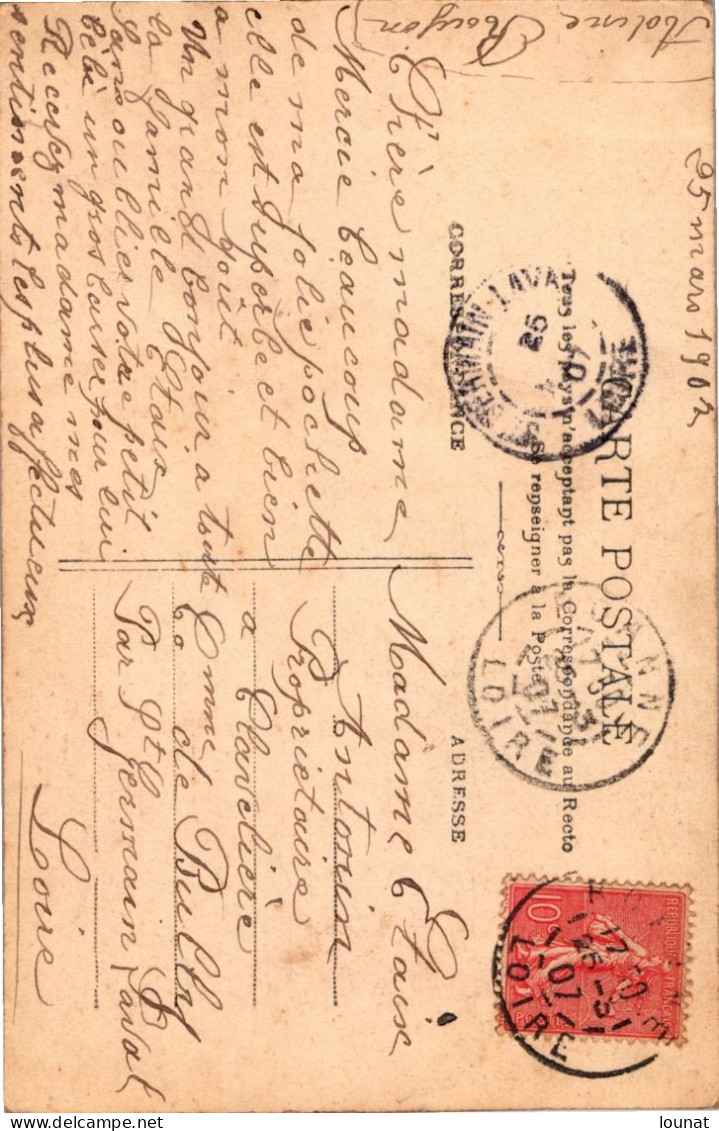 25 mars 1907
CARTE POSTALE
Tous les pays n'acceptant pas la Correspondance au Recto
Se renseigner à la Poste
CORRESPONDANCE
ADRESSE
Chère madame
Mercie beaucoup
de ma jolie pochette
elle est superbe et bien
a mon goût
Un grand bonjour a toute
la famille Etaix
Sans oublier votre petit
bébé un gros baiser pour lui
Recevez madame mes
sentiments les plus affectueux
Madame Etaix
Antonin
Propriétaire
a Clavelière
Cmme de Bully
Par St Germain Laval
Loire
ST GERMAIN-LAVAL
LOIRE
ROANNE
LOIRE
RÉPUBLIQUE FRANÇAISE
10
POSTES
ROANNE
LOIRE
lounat